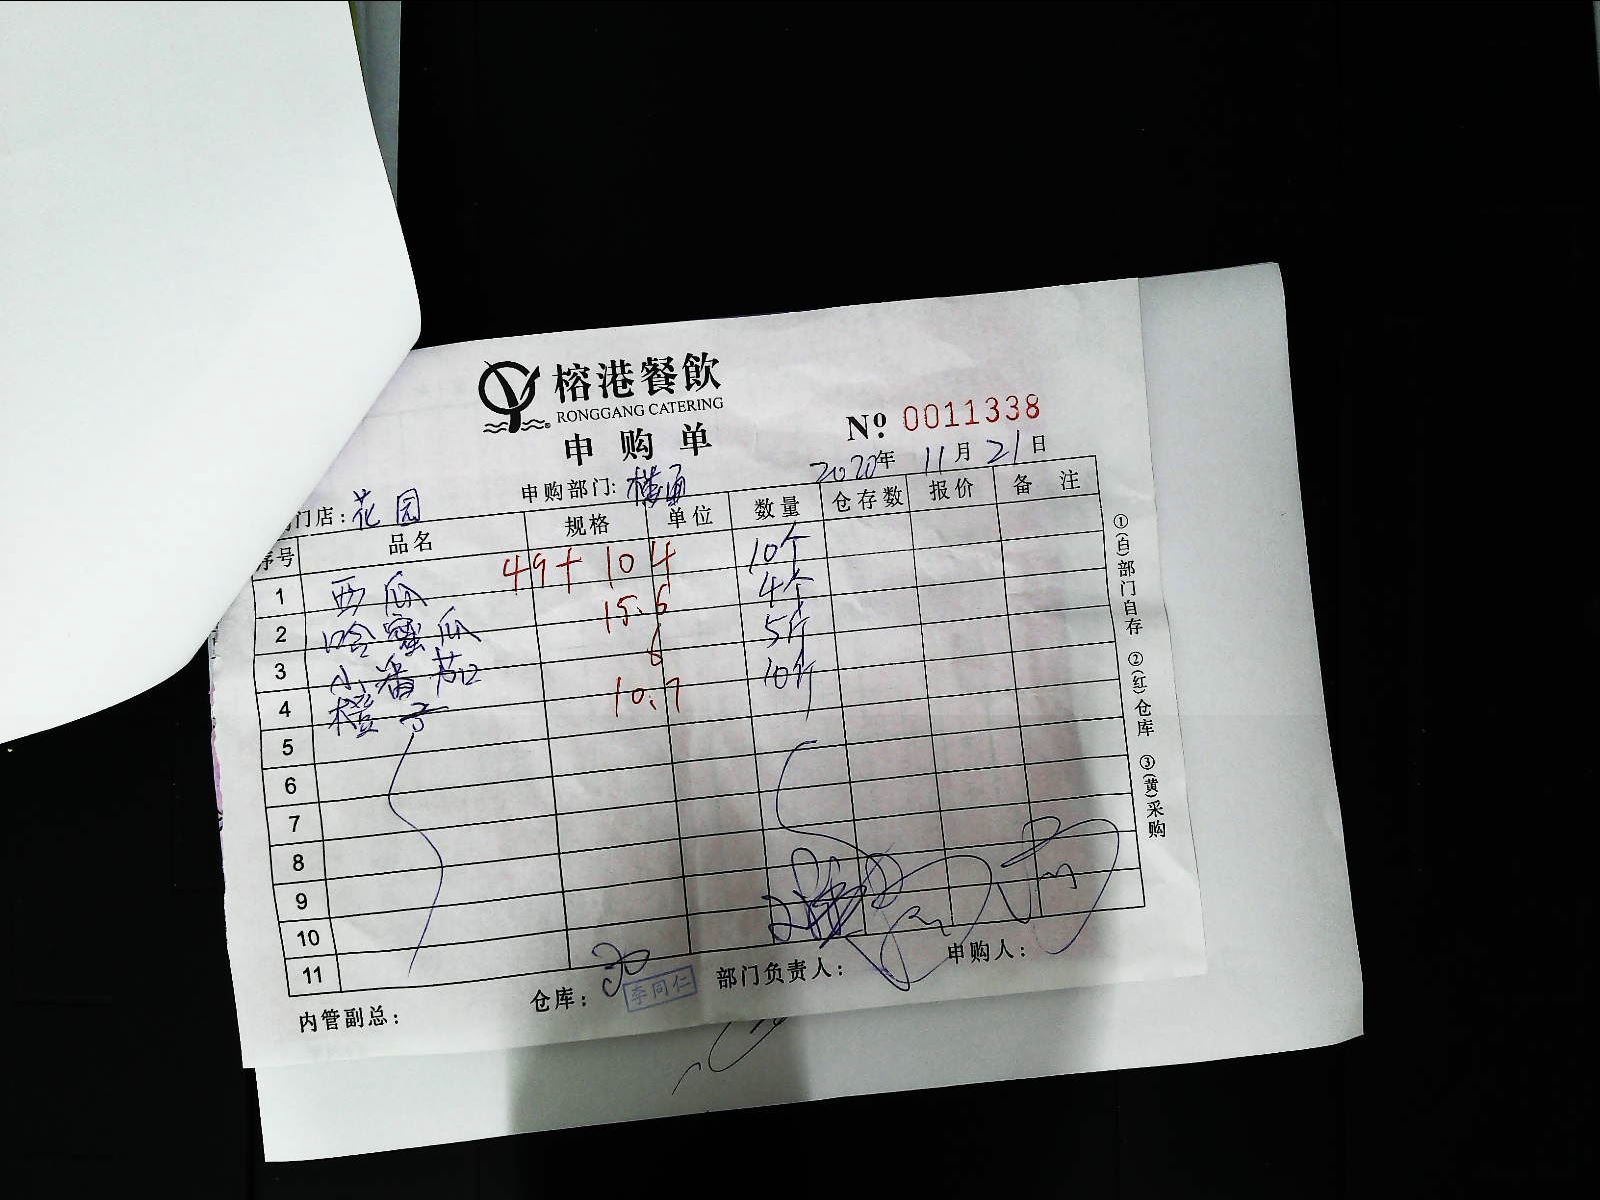 榕港餐飲
RONGGANG CATERING
申购单
Nº 0011338
2020年 11月 21日
门店:花园 申购部门:楼面
序号 品名 规格 单位 数量 仓存数 报价 备注
1 西瓜 49+104 10个
2 哈蜜瓜 15.6 4个
3 小番茄 6 5斤
4 橙子 10.7 10斤
5
6
7
8
9
10
11
内管副总: 仓库: 李同仁 部门负责人: 申购人:
①(白)部门自存 ②(红)仓库 ③(黄)采购